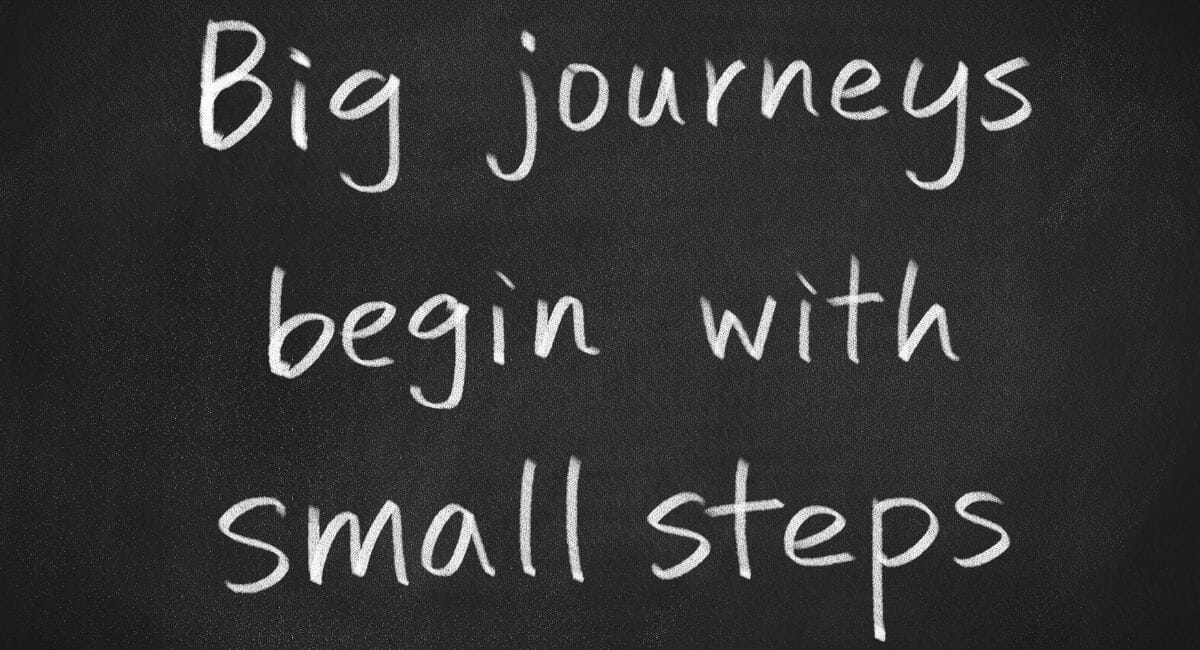 Big journeys
begin with
small steps